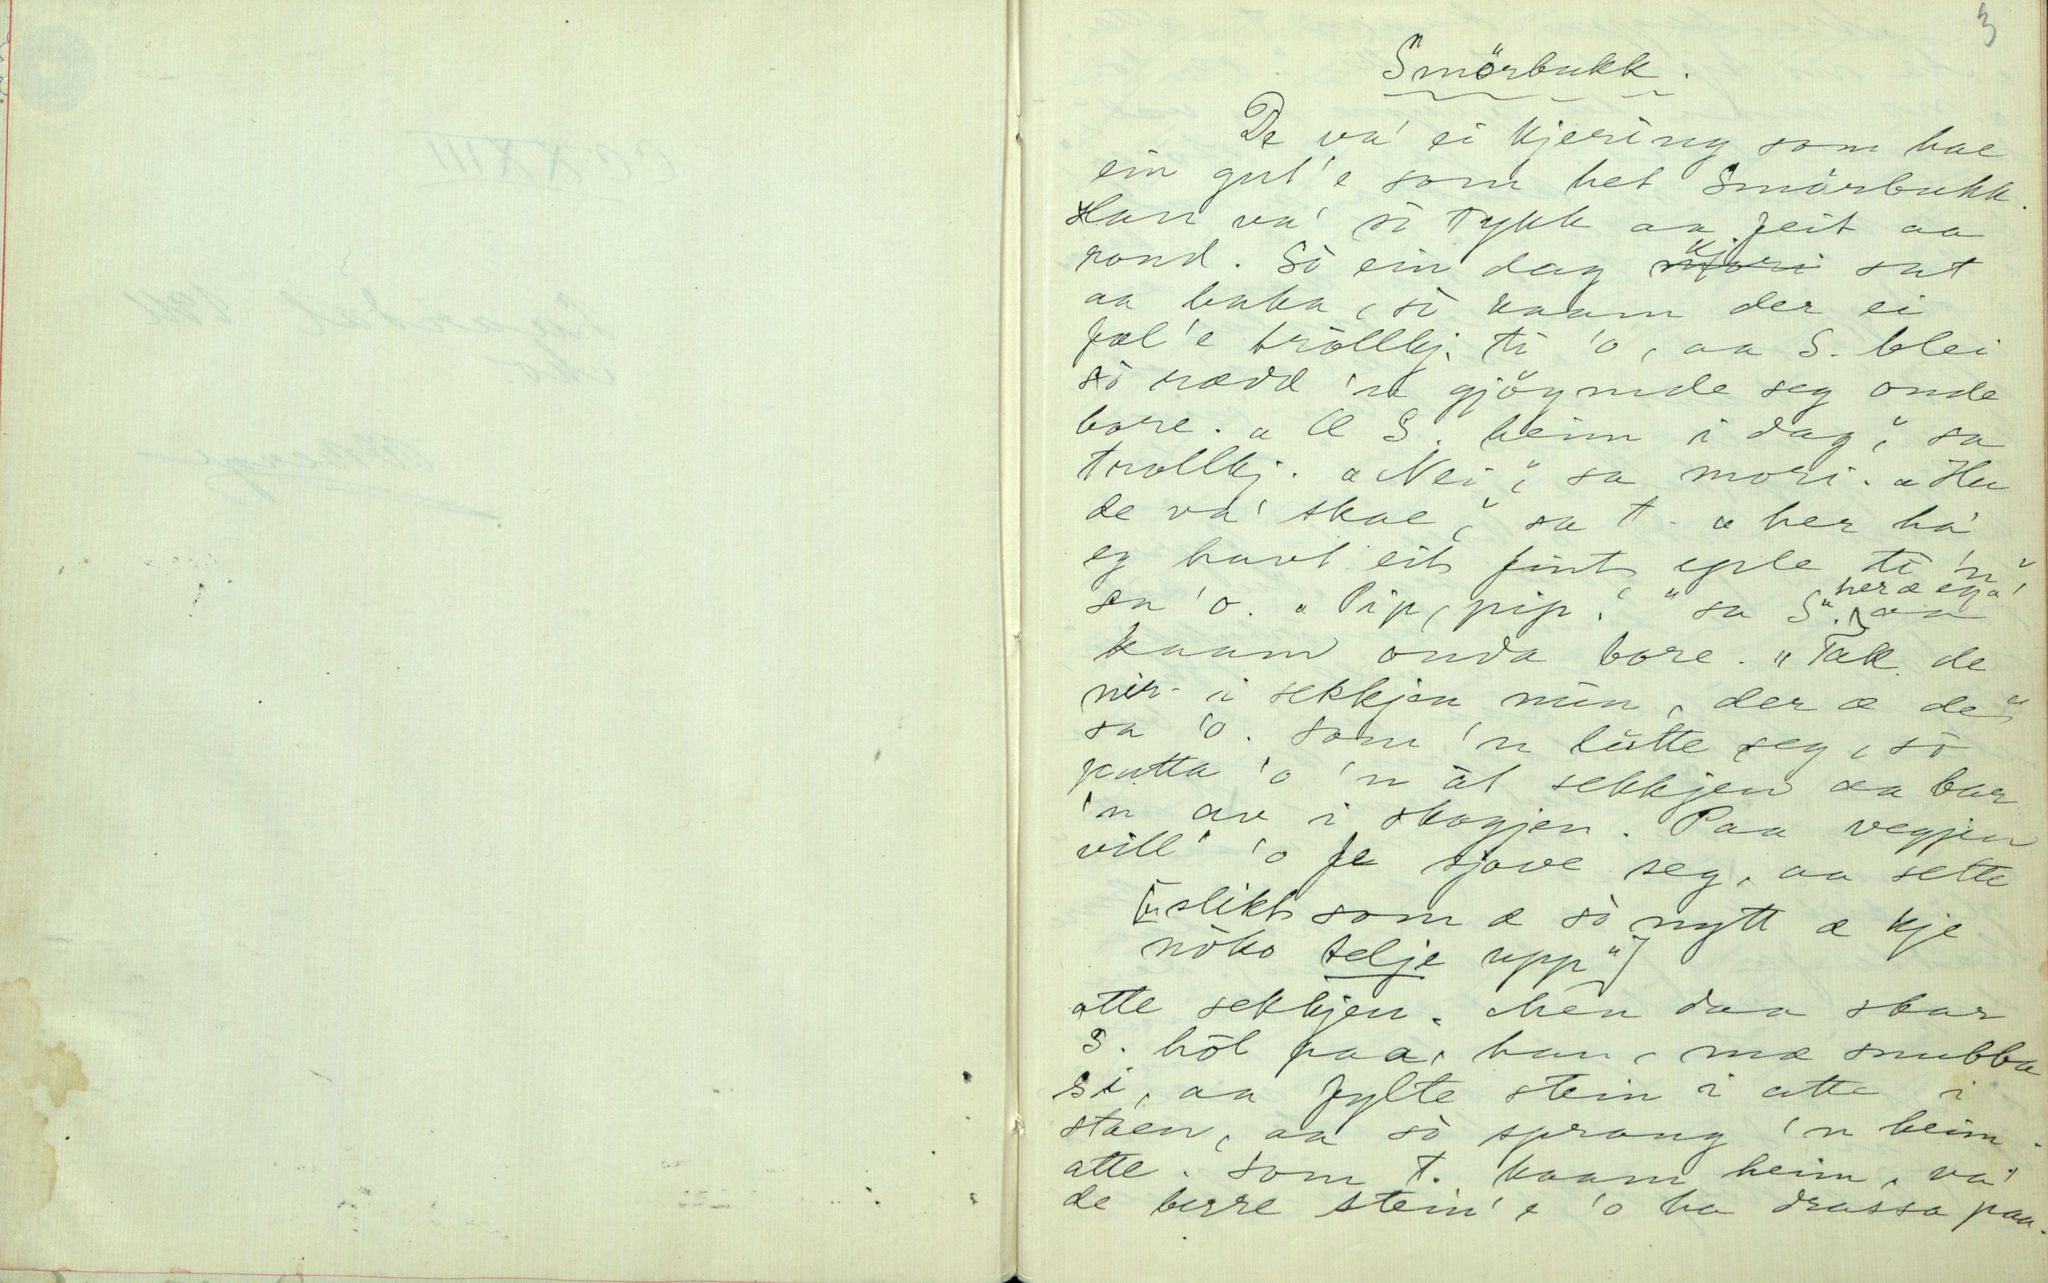 3
Smörbukk.
De va' ei kjering som hae
ein gut'e som het Smörbukk.
Han va' sò tykk aa feit aa
rond. Sò ein dag kj. sat
aa baka, sò kaam der ei
fæl'e tròllkj. ti 'o, aa S. blei
sò rædd 'n gjöymde seg onde
bore. "Æ S. heim i dag", sa
trollkj. "Nei", sa mori. "Hu
de va' skae", sa t. "her ha'
eg havt eit fint eple ti 'n",
sa 'o. "Pip, pip!" sa S. "her æ eg" aa
kaam onda bore. "Tak de
nér i sekkjen min, der æ de"
sa 'o. Som 'n lutte seg, sò
putta 'o 'n àt sekkjen aa bar
'n av i skogjen. Paa vegjen
vill' 'o fe sjove seg, aa sette
["slikt som æ sò nytt æ kje
nòko telje upp"]
atte sekkjen. Men daa skar
S. hòl paa, han, mæ snubba
si, aa fylte stein i atte i
staen, aa sò sprang 'n heim
atte. Som t. kaam heim, va'
de berre stein'e 'o ha drassa paa.